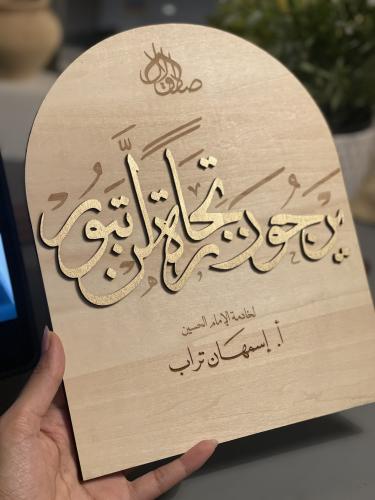 يرجون تجارة لن تبور
لخادمة الإمام الحسين
أ. إسمهان تراب